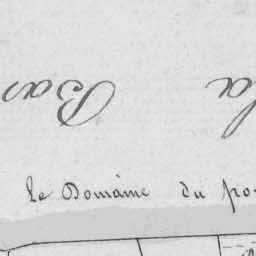 la Bas
Le Domaine du po